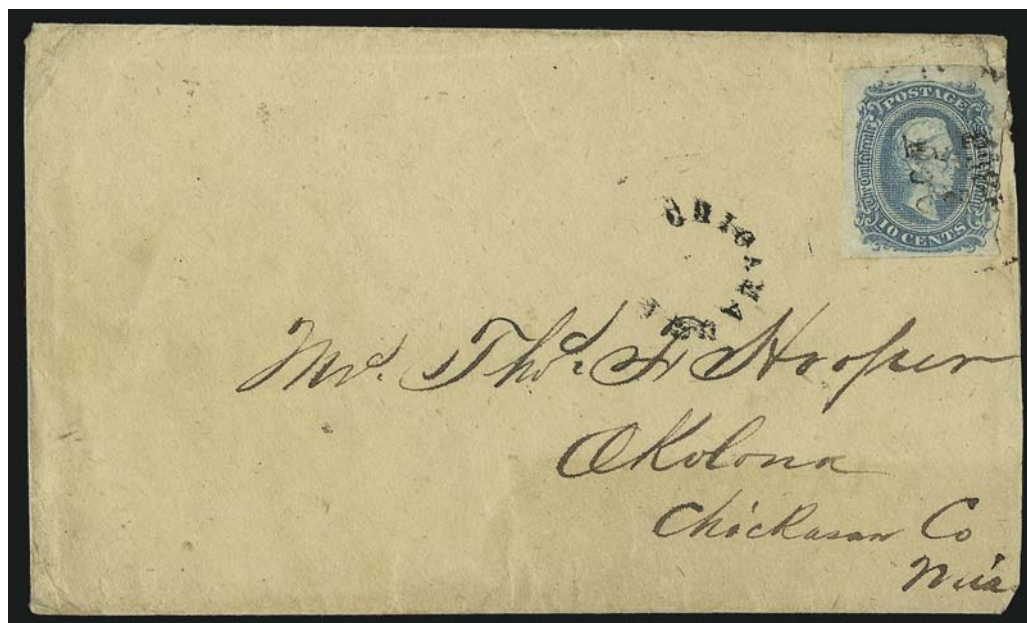 POSTAGE
10 CENTS
CHICAMA
Mr. Thos. F Hooper
Okolona
Chickasaw Co
Miss